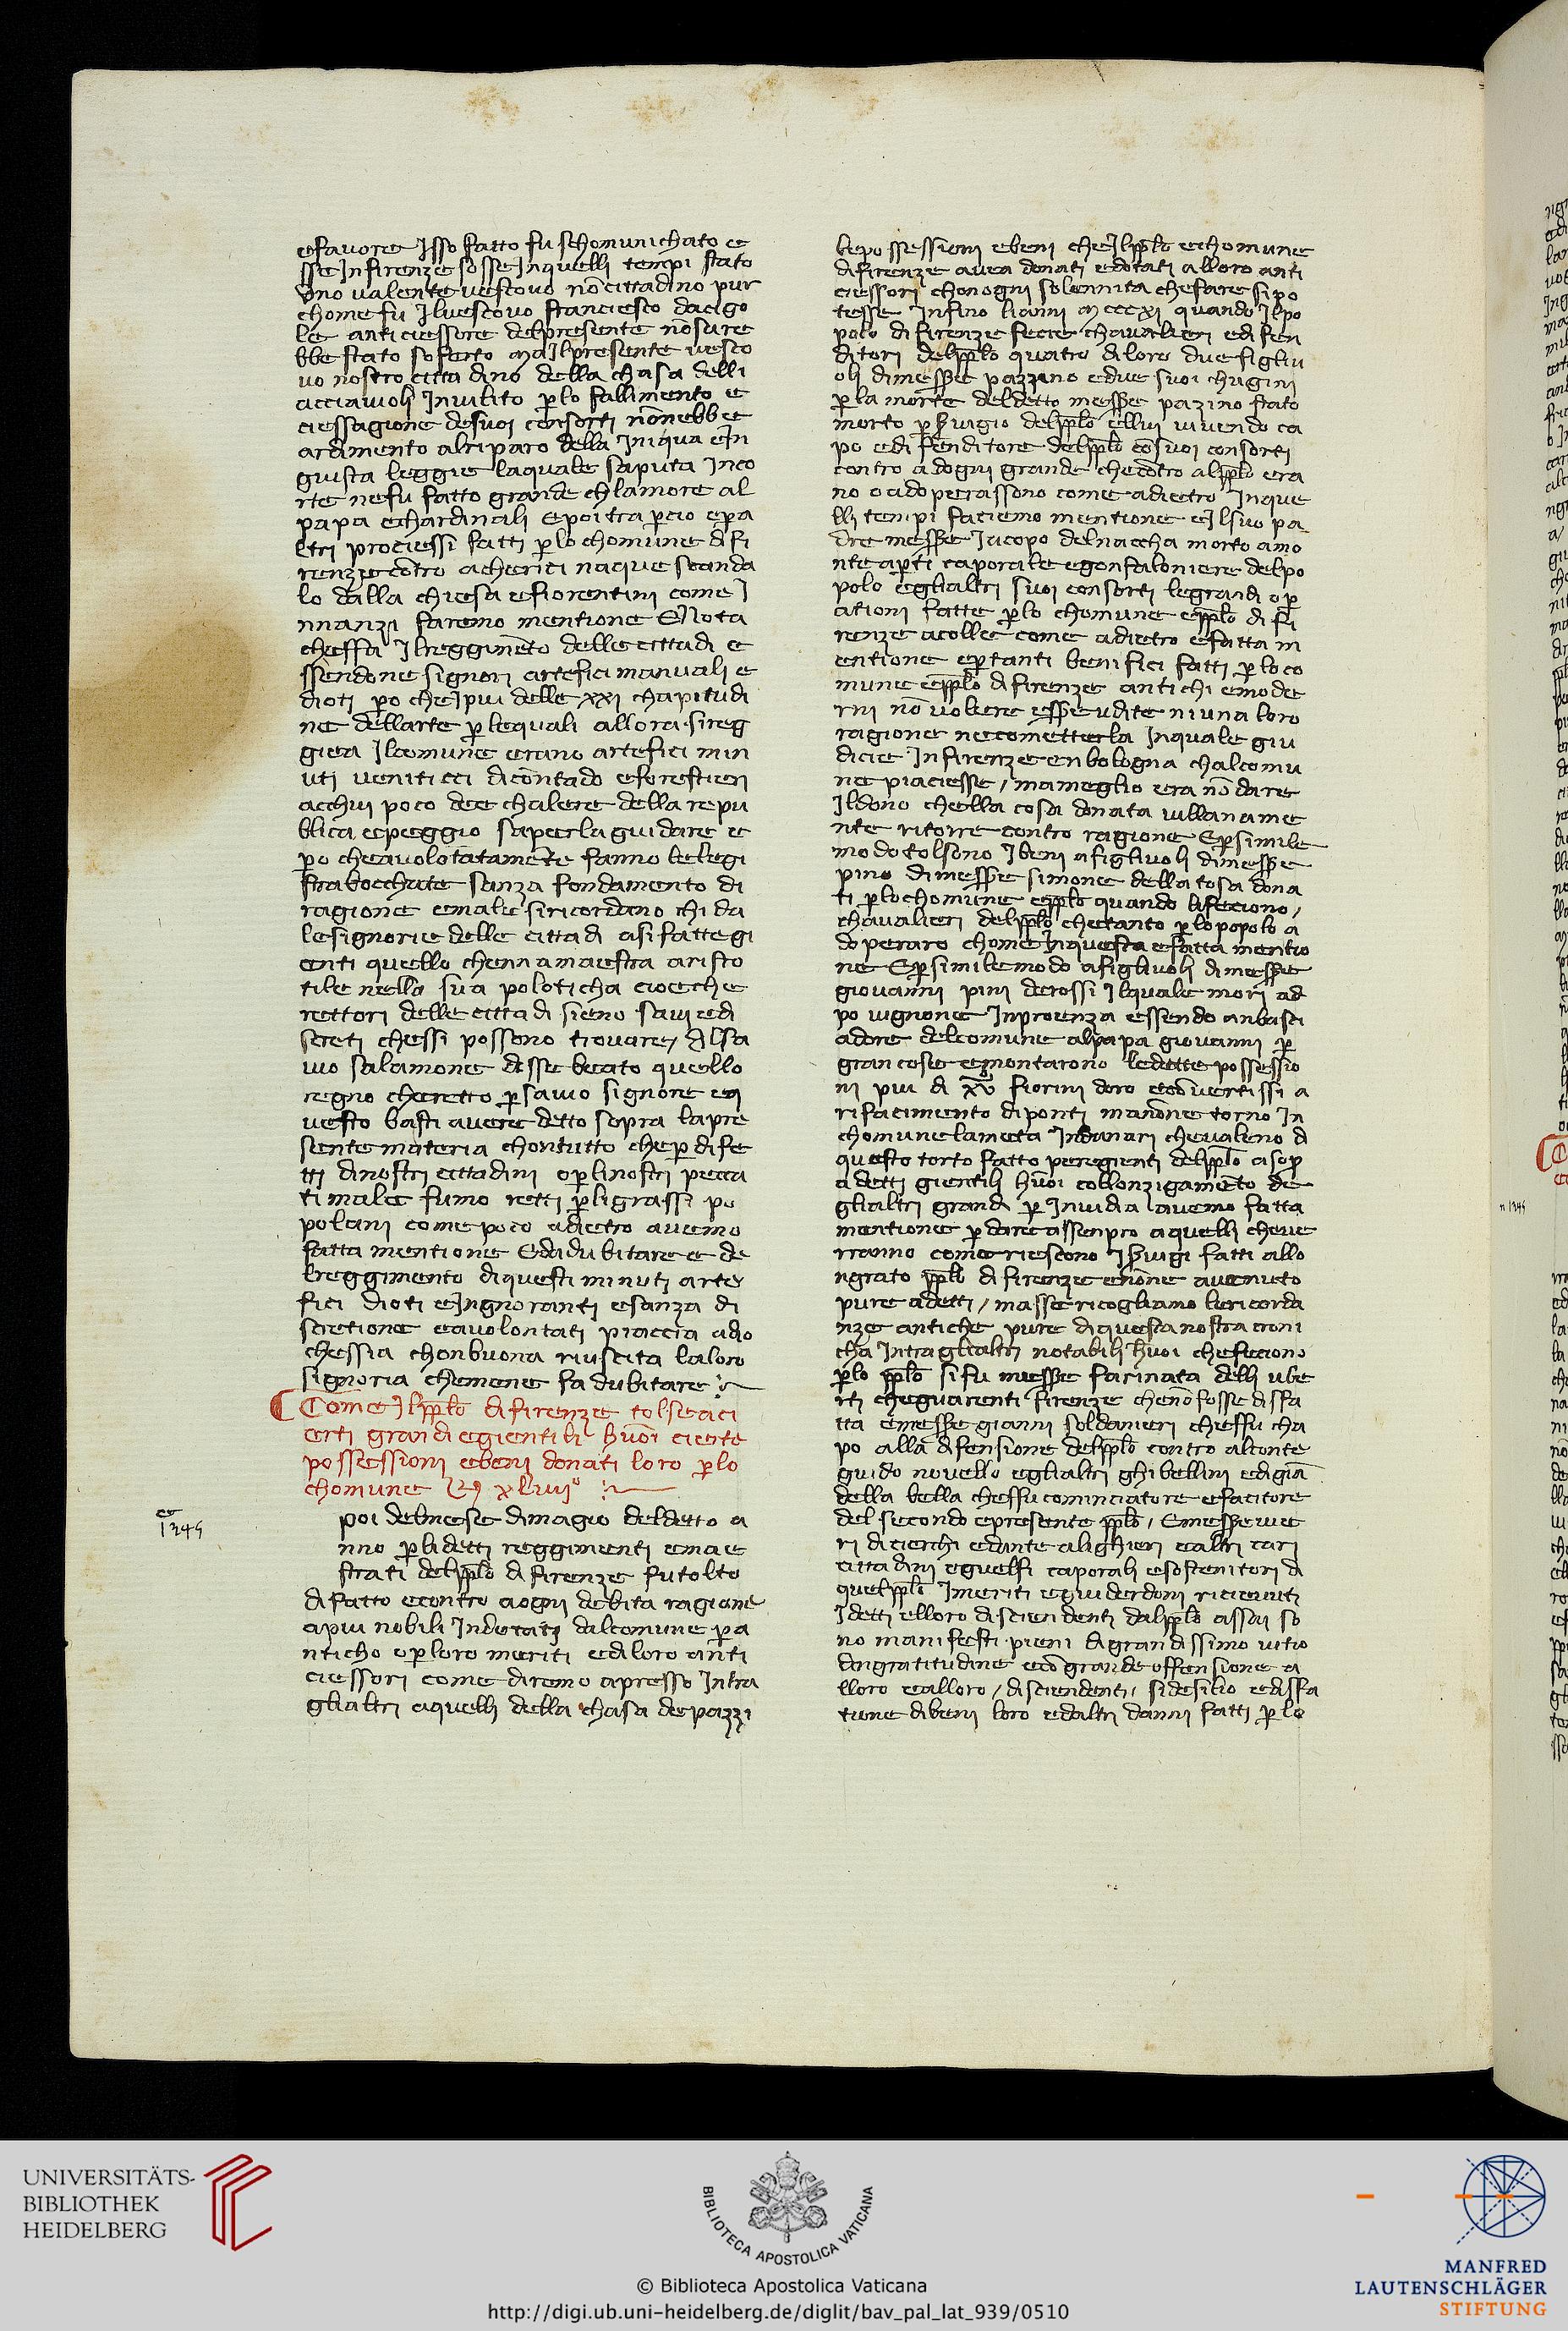 efauore Jsso fatto fu schomunichato e
sse Jnfirenze fosse Jnquelli tempi stato
Vno ualente uescouo nō cittadino pur
chome fu Jluescouo francesco dacigo
li anticiessore delpresente nōsare
bbe stato soferto Ma Jlpresente uesco
uo nostro cittadino della chasa delli
acciaiuoli Jnuilito plo fallimento e
ciessagione desuoi consorti nonnebbe
ardimento alriparo della Jniqua e Jn
giusta leggie laquale saputa Jnco
rte nefu fatto grande chlamore al
papa echardinali Epoi tra pcio epa
ltri prociessi fatti plo chomune difi
renze cōtro acherici naque scanda
lo dalla chiesa efiorentini come J
nnanzi faremo mentione E Nota
cheffa Jlreggimēto delle cittadi e
ssendone signori artefici manuali e
dioti po che Jpiu delle xxi chapitudi
ne dellarte plequali allora sireg
giea Jlcomune erano artefici min
uti veniticci dicontado eforestieri
acchui poco dee chalere della repu
blica epeggio saperla guidare e
po cheauolotatamēte fanno lelegi
straboccchate sanza fondamento di
ragione emale siricordano chi da
lesignorie delle cittadi asifattegi
enti quello chennamaestra aristo
tile nella sua poloticha cioeche
rettori delle cittadi sieno saui edi
screti chessi possono trouare, Alsa
uio salamone disse beato quello
regno cheretto psauio signore eq
uesto basti auere detto sopra lapre
sente materia chontutto chep dife
tti dinostri cittadini oplinostri pecca
ti male fumo retti pligrassi po
polani come poco adietro auemo
fatta mentione Edadubitare e de
lreggimento diquesti minuti arte
fici dioti eJngnoranti esanza di
scretione eauolontati piaccia adio
chessia chonbuona riuscita laloro
signoria chemene fa dubitare
Come Jlpplo difirenze tolseaci
erti grandi egientili huoi cierte
possessioni ebeni donati loro plo
chomune xliiii°
1345
poi delmese dimagio deldetto a
nno plidetti reggimenti emae
strati delpplo difirenze futolto
difatto econtro aogni debita ragione
apiu nobili Jndotati dalcomune pa
nticho oploro meriti ediloro anti
ciessori come diremo apresso Jntra
glialtri aquelli della chasa depazzi
lepossessioni ebeni che Jlpplo echomune
difirenze auea donati edotati alloro anti
ciessori chonogni solennita chefare sipo
tesse Jnfino lianni Mcccxi quando Jlpo
polo difirenze fecie chaualieri edifen
ditori delpplo quatro diloro due figliu
oli dimessere pazzino edue suoi chugini
pla morte deldetto messere pazino stato
morto pseruigio delpplo ellui uiuendo ca
po edifenditore delpplo cōsuoi consorti
contro adogni grande checōtro alpplo era
no o adoperassono come adietro Jnque
lli tempi faciemo mentione e Jlsuo pa
dre messere Jacopo delnaccha morto amo
nteapti caporale egonfaloniere delpo
polo eglialtri suoi consorti legrandi op
ationi fatte plo chomune epplo difi
renze acolle come adietro efatta m
entione eptanti benifici fatti ploco
mune epplo difirenze antichi emode
rni nō uollere essere udite niuna loro
ragione necometterla Jnquale giu
dicie Jnfirenze enbologna chalcomu
ne piaciesse, mameglio era nō dare
Jldono chella cosa donata uillaname
nte ritorre contro ragione Epsimile
modo tolsono Jbeni afigliuoli dimessere
pino dimessere simone della tosa dona
ti plochomune epplo quando lifeciono,
chaualieri delpplo chetanto plopopolo a
doperaro chome Jnquesta efatta mentio
ne Epsimilemodo afigliuoli dimessere
giouanni pini derossi Jlquale mori ad
po uignone Jnproenza essendo anbasci
adore delcomune alpapa giouanni p
gran cose emontarono ledette possessio
ni piu di xv fiorini doro ecōuertissi a
rifacimento diponti manōne torno Jn
chomune lameta Jndanari cheualeno di
questo torto fatto peregienti delpplo asop
adetti gientili huoi collonzigamēto de
glialtri grandi p Jnuidia lauemo fatta
mentione pdare assenpro aquelli cheue
rranno come riescono Jseruigi fatti allo
ngrato pplo difirenze enōne auenuto
pure adetti, masse ricogliamo lericorda
nze antiche pure diquesta nostra croni
cha Jntraglialtri notabili huoi chefeciono
plo pplo sifu messere farinata delli ube
rti cheguarenti firenze chenōfosse disfa
tta emessere gianni soldanieri cheffu cha
po alla difensione delpplo contro alconte
guido nouello eglialtri ghibellini edigiā
della bella cheffu cominciatore efacitore
del secondo epresente pplo, Emessereue
ri dicierchi edante alighieri ealtri cari
cittadini eguelfi caporali esostenitori di
quelpplo Jmeriti eguiderdoni ricieuuti
Jdetti elloro disciendenti dalpplo assai so
no manifesti pieni digrandissimo uitio
dingratitudine ecō grande offensione a
lloro ealloro, disciendenti, sidesilio edisfa
tione dibeni loro edaltri danni fatti plo
n 1345
UNIVERSITÄTS-
BIBLIOTHEK
HEIDELBERG
BIBLIOTECA APOSTOLICA VATICANA
© Biblioteca Apostolica Vaticana
http://digi.ub.uni-heidelberg.de/diglit/bav_pal_lat_939/0510
MANFRED
LAUTENSCHLÄGER
STIFTUNG